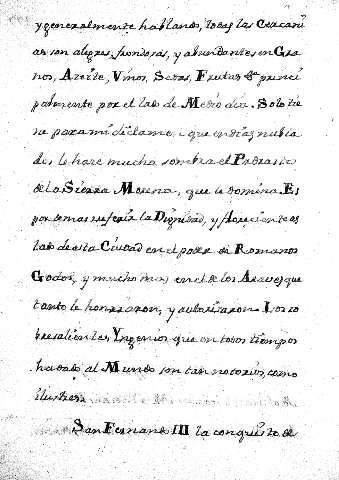 y generalmente hablando, todas las Cercaní
as son alegres, frondosas, y abundantes en Gra
nos, Azeite, Vinos, Sedas, Frutas &ª princi
palmente por el lado de Medio dia. Solo tie
ne para mi dictamen que en dias nubla
dos le hace mucha sombra el Padrasto
de la Sierra Morena, que le domina. Es
por demas referir la Dignidad, y floreciente es
tado de esta Ciudad en el poder de Romanos
Godos, y mucho mas en el de los Arabes que
tanto le honrraron, y autorizaron. Los so
bresalientes Yngenios que en todos tiempos
ha dado al Mundo son tan notorios, como
ilustres.
San Fernando III la conquisto de